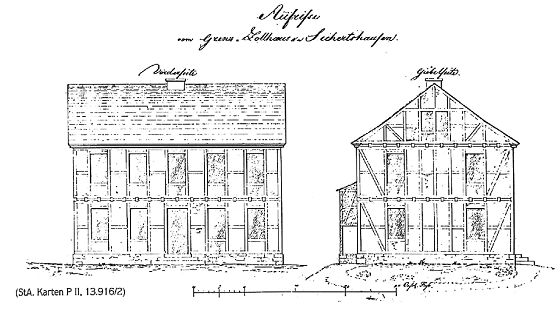 Aufrisse
vom Grenz-Zollhaus zu Sichertshausen.
Vorderseite
Giebelseite
(StA. Karten P II, 13.916/2)